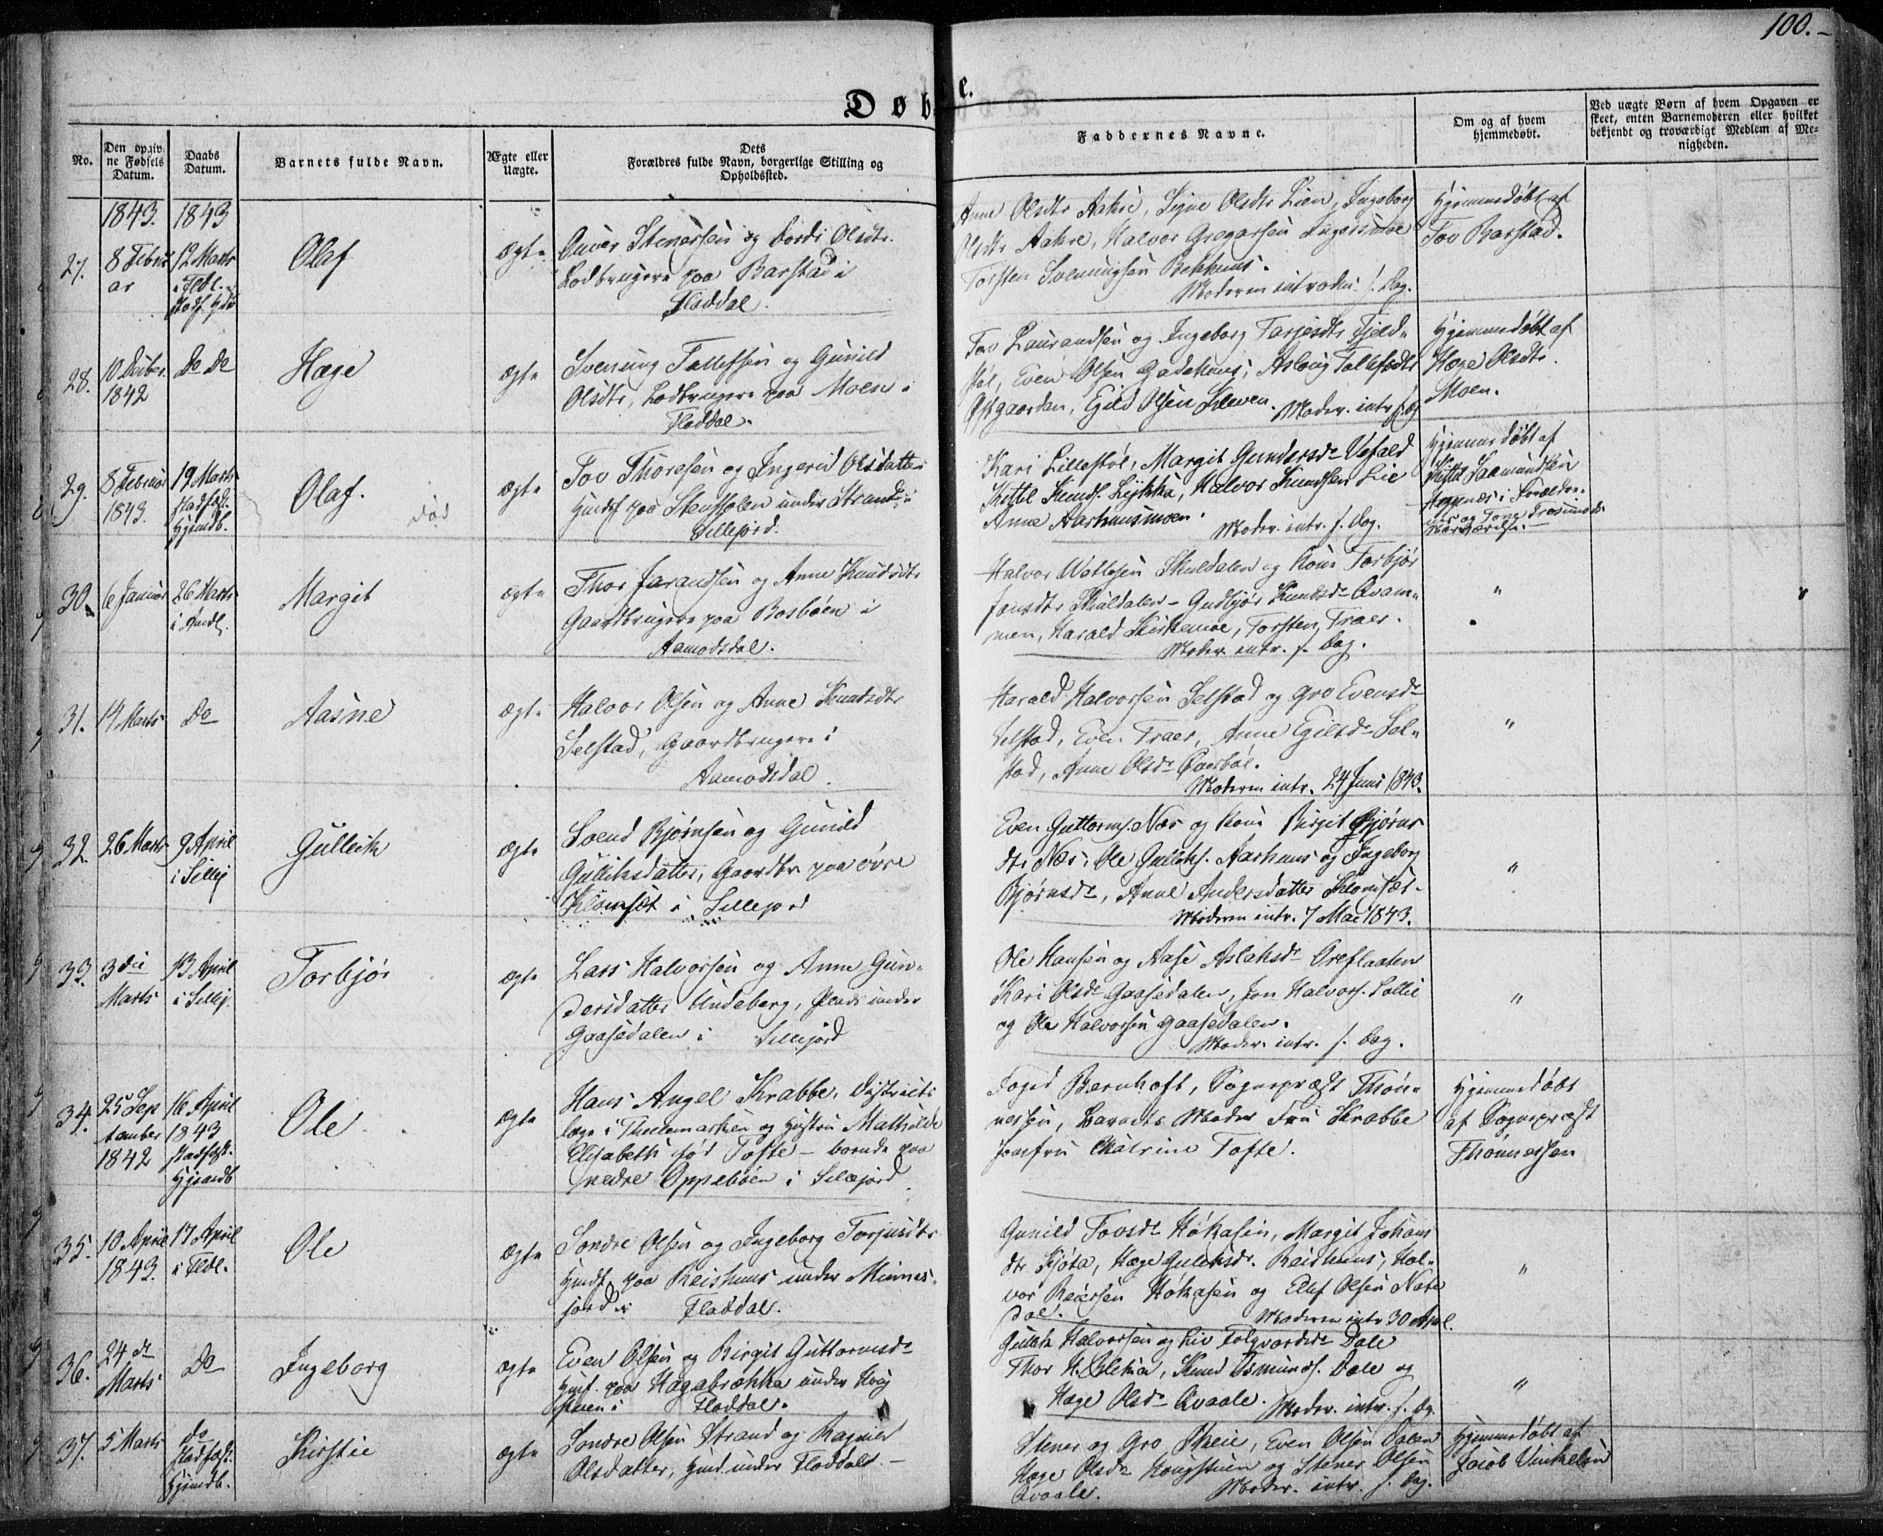 100.
Døbe.
No.
Den opgivne Fødsels Datum.
Daabs Datum.
Barnets fulde Navn.
Ægte eller Uægte.
Dets Forældres fulde Navn, borgerlige Stilling og Opholdssted.
Faddernes Navne.
Om og af hvem hjemmedøbt.
Ved uægte Børn af hvem Opgaven er skeet, enten Barnemoderen eller hvilket bekjendt og troværdigt Medlem af Menigheden.
1843. 1843
27. 8 Februar 12 Marts i Fldl. stadf. hjd
Olaf
ægte
Gunder Stenersen og Dordi Olsdtr.
Lodbrugere paa Barstad i
Fladdal.
Anne Olsdtr Aakre, Signe Olsdtr Lien, Ingeborg
Olsdtr Aakre, Halvor Gregarsen
Torsten Svenungsen Bekhuus.
Moderen introdu: s. Dag.
Hjemmedøbt af
Tov Barstad.
28. 10 Decbr. 1842
Do Do
Hæge
ægte
Svenung Tallefsen og Gunild
Olsdtr, Lodbrugere paa Moen i
Fladdal.
Tov Laurandsen og Ingeborg Tarjesdtr Fjeld-
støl, Even Olsen Gadekaas, Aslaug Tallefsdtr
Østgaarden, Egild Olsen Kleven. Moder. intr. s. Dg
Hjemmedøbt af
Hæge Olsdtr.
Moen.
29. 8 Februar 1843.
19 Marts stadfæst. Hjemdb.
Olaf.
død
ægte
Tov Thoresen og Ingerid Olsdatter
Huusf paa Stenstolen under Strand i
Sillejord.
Kari Lillestøl, Margit Gundersdr Vefald
Kittel Knuds. Lykkja, Halvor Knudsen Lie
Anne Aarhuusmoen.
Moder. intr. s. Dag.
Hjemmedøbt af
Kittel Saamundsen
30. 6 Januar
26 Marts i Amdl.
Margit
ægte
Thor Jarandsen og Anne Knudsdtr
Gaardbrugere paa Bosbøen i
Aamodsdal.
Halvor Wetlesen Skuldalen og Kone Torbjør
Jonsdtr Skuldalen – Gudbjør Knudsdr Qvam-
men, Harald Kirkemoe, Torsten Traer.
Moder. intr. s. Dag.
"
31. 14 Marts
Do
Aasne
ægte
Halvor Olsen og Anne Knudsdtr
Selstad, Gaardbrugere i
Aamodsdal.
Harald Halvorsen Selstad og Gro Evensdr
Selstad, Even Traer, Anne Egilsdr Sel-
stad, Anne Olsdr
Moderen intr. 24 Juni 1843.
"
32. 26 Marts
9 April i Sillej
Gullik
ægte
Svend Bjørnsen og Gunild
Gulliksdatter, Gaardbr paa øvre
Klomset i Sillejord
Even Guttorms. Næs og Kone Birgit Bjørns
dtr Næs, Ole Gulliks. Aarhuus og Ingeborg
Bjørnsdr, Anne Andersdatter Klomset.
Moderen intr. 7 Mai 1843.
"
33. 3die Marts
13 April i Sillej.
Torbjør
ægte
Lars Halvorsen og Anne Gun-
dersdatter Lindeberg, Plads under
Gaasedalen i Sillejord
Ole Hansen og Aase Aslaksdr Oreflaaten
Kari Olsdr Gaasedalen, Jon Halvors. Lollie
og Ole Halvorsen Gaasedalen.
Moder. intr. s. Dag.
"
34. 25 September 1842
16 April 1843 stadfæst. Hjemdb
Ole
ægte
Hans Angel Krabbe, Districts
læge i Thelemarken og Hustru Mathilde
Elisabeth fød Tofte – boende paa
nedre Oppebøen i Sillejord
Foged Bernhoft, Sognepræst Thøn-
nessen, Barnets Moder Fru Krabbe
Jomfru Cathrine Tofte.
Hjemmedøbt
af Sognepræst
Thønnessen
35. 10 April 1843.
17 April i Fldl.
Ole
ægte
Sondre Olsen og Ingeborg Torjusdtr
Huusf. paa Reishuus under Minnes-
jord i Fladdal.
Gunild Tovsdr Høkasin, Margit Johans
dtr Kjøta, Hæge Gulliksdr. Reishuus, Hal-
vor Reiersen Høkasen og Olef Olsen Nate
dal.
Moderen intr. 30 April.
"
36. 24de Marts
Do
Ingeborg
ægte
Even Olsen og Birgit Guttormsdr
Huusf. paa Hagabrækka under Houg
stuen i Fladdal.
Gullik Halvorsen og Liv Folqvardsdr Dale
Thor H. , Knud Osmunds. Dale og
Hæge Olsdr Qvaale. Moder. intr. s. Dg.
"
37. 5 Marts
Do stadfæst. Hjemdb.
Kirstie
ægte
Sondre Olsen Strand og Ragnild
Olsdatter, Huusf. under Fladdal. –
Stener og Gro Skeie, Even Olsen Dalen
Hæge Olsdr Hougstuen og Stener Olsen
Qvaale. Moder. intr. s. Dag.
Hjemmedøbt af
Jacob Vinkelin